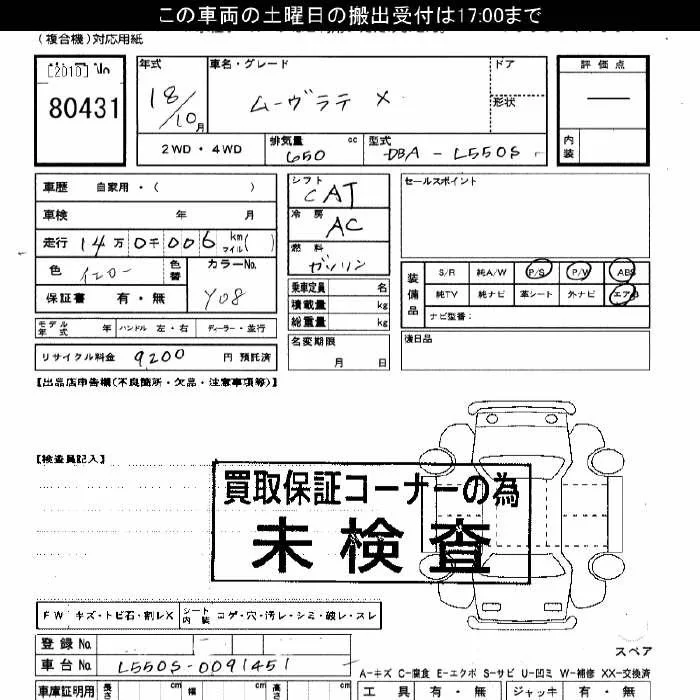 この車両の土曜日の搬出受付は17:00まで
(複合機)対応用紙
[2010] No
80431
年式
18/10月
車名・グレード
ムーヴラテ X
ドア
形状
評価点
内装
2WD・4WD
排気量 cc
650
型式
DBA - L550S
車歴 自家用・( )
車検 年 月
走行 14万0千006 km マイル( )
色 イエロー
色替
カラーNo.
Y08
保証書 有・無
モデル年式 年 ハンドル 左・右 ディーラー・並行
リサイクル料金 9200 円 預託済
シフト
CAT
冷房
AC
燃料
ガソリン
乗車定員 名
積載量 kg
総重量 kg
名変期限
月 日
セールスポイント
装備品
S/R 純A/W P/S P/W ABS
純TV 純ナビ 革シート 外ナビ エアB
ナビ型番:
後日品
【出品店申告欄(不良箇所・欠品・注意事項等)】
【検査員記入】
買取保証コーナーの為
未検査
FW キズ・トビ石・割レX
シート内装 コゲ・穴・汚レ・シミ・破レ・スレ
登録No.
車台No. L550S-0091451
スペア
A-キズ C-腐食 E-エクボ S-サビ U-凹ミ W-補修 XX-交換済
車庫証明用 長さ cm 幅 cm 高さ cm
工具 有・無 ジャッキ 有・無